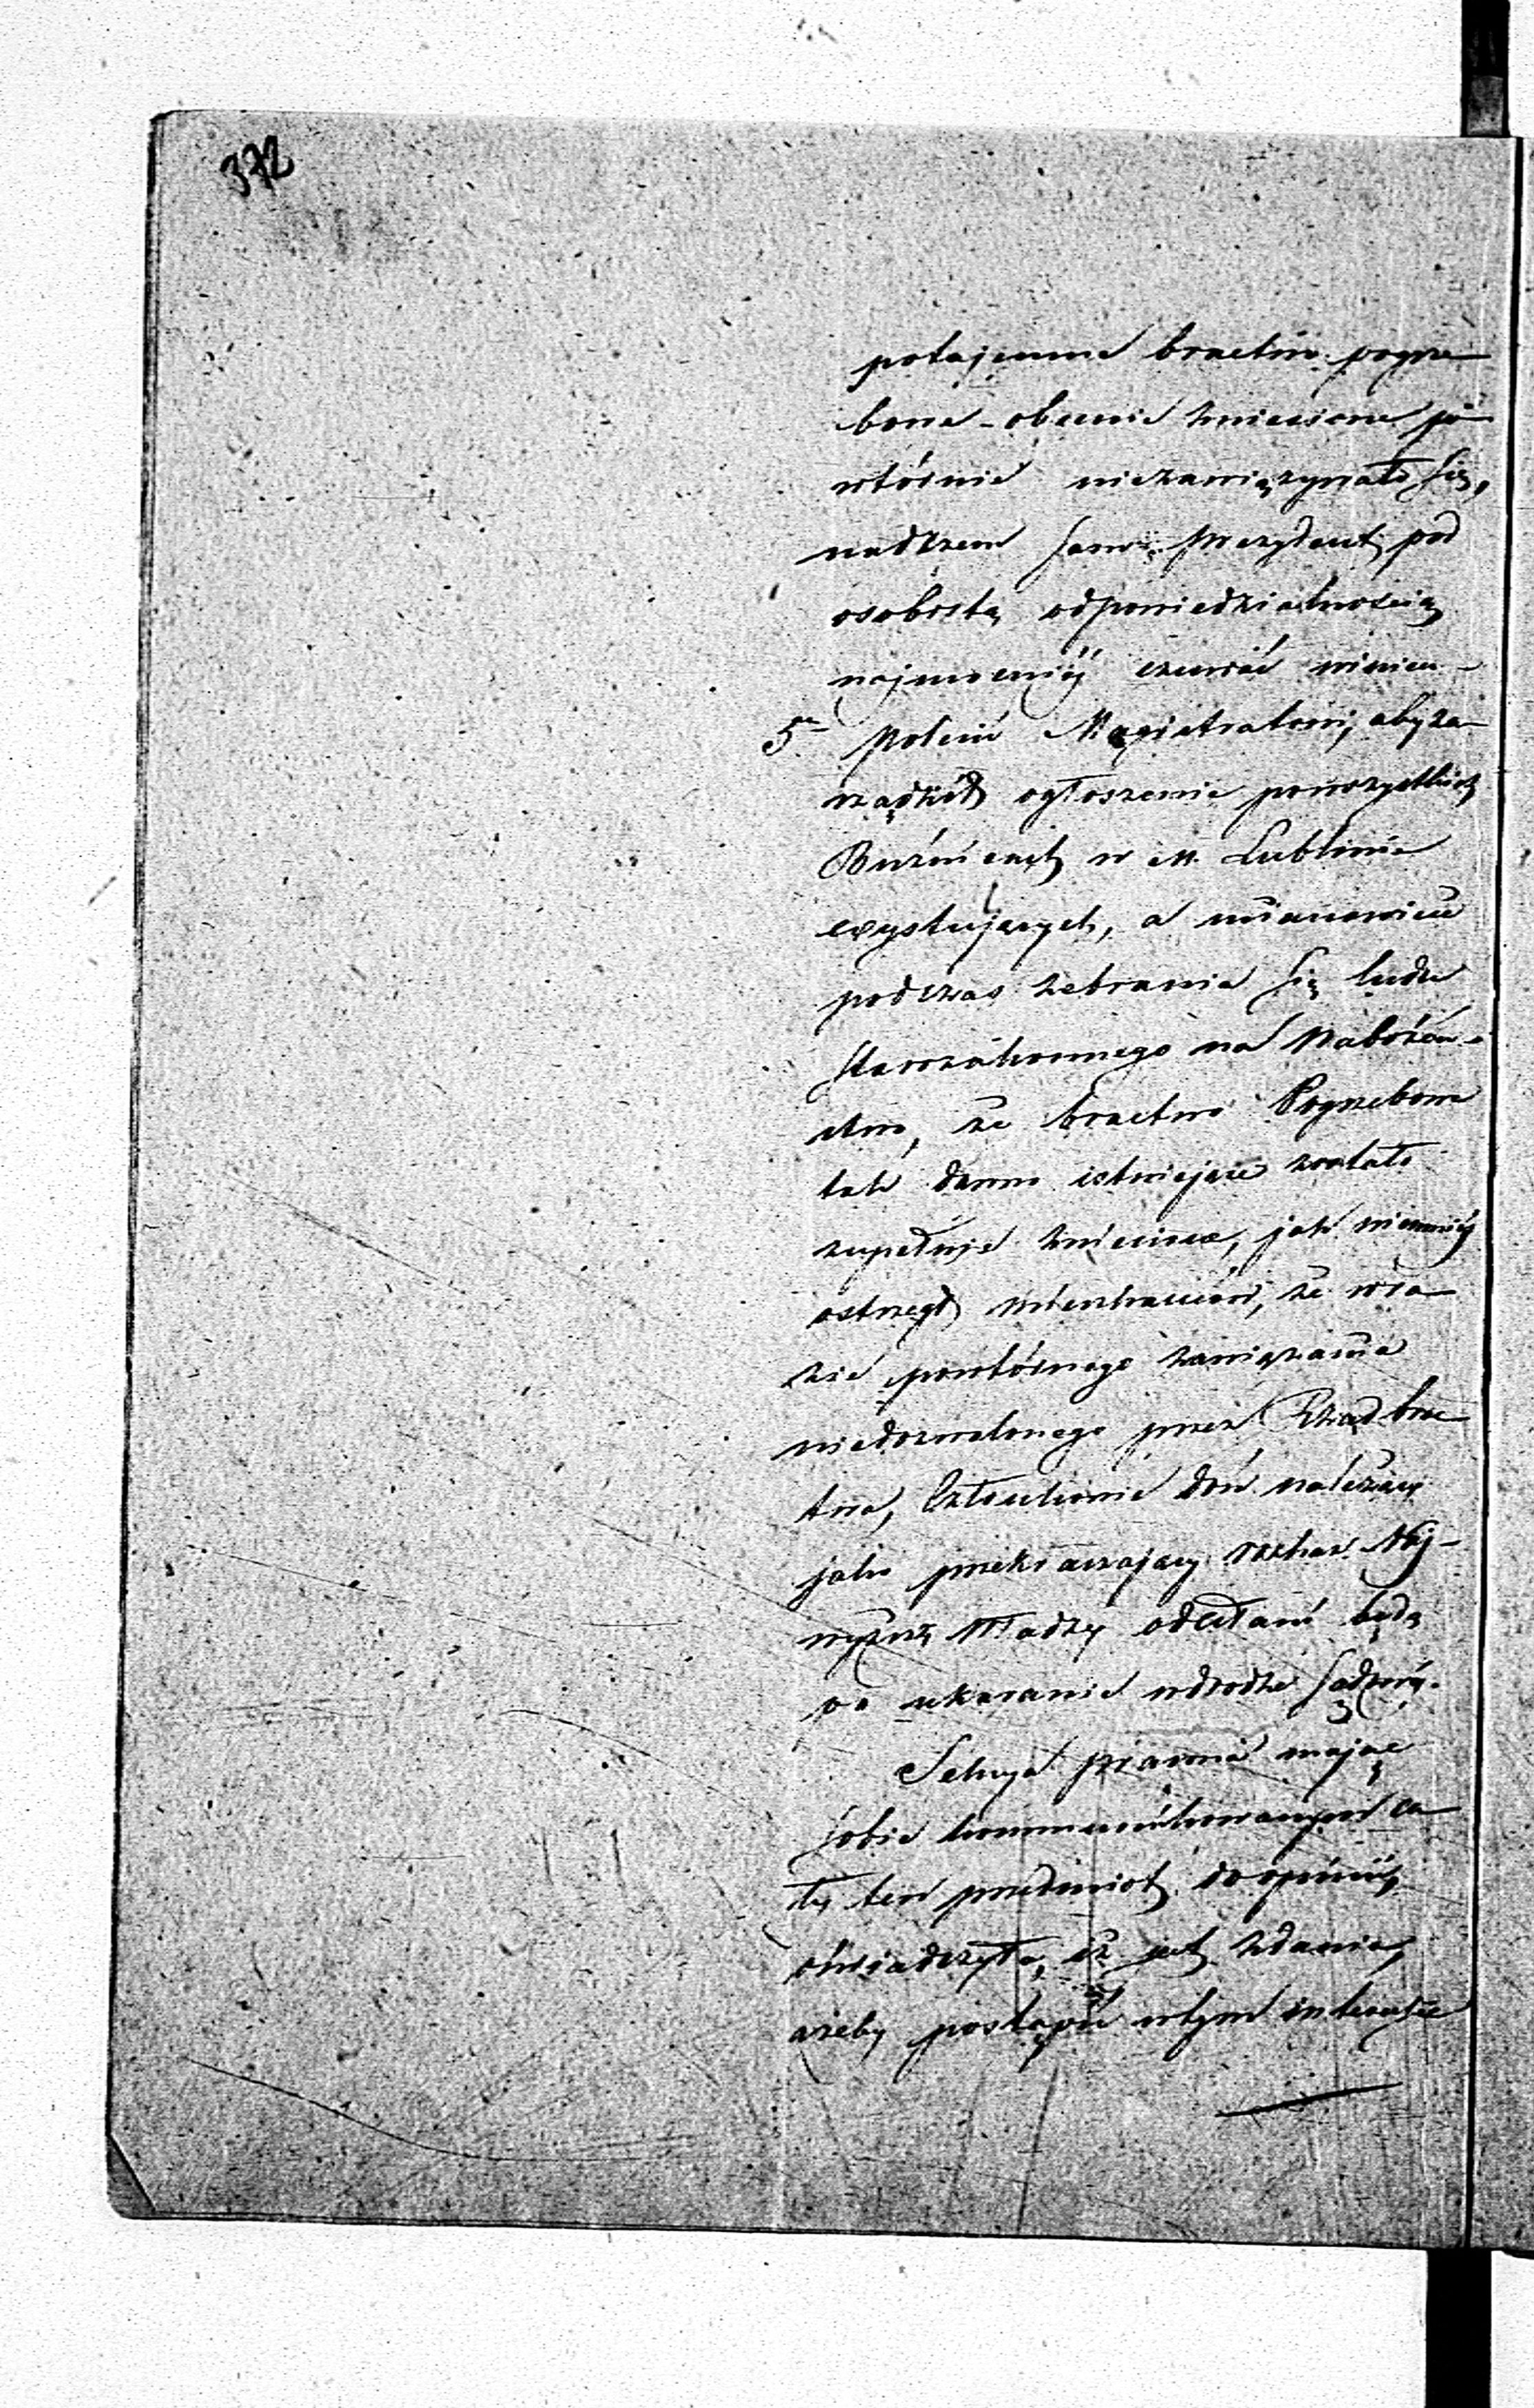 372
potajemne bractwo pogrze
bowe - obecnie zniesione po
wtórnie niezawięzywało się,
nadczem sam Prezydent pod
osobistą odpowiedzialnością
najmocniéj czuwać winien -
5º Polecić Magistratowi, aby za-
rządził ogłoszenie po wszystkich
Bużnicach w M. Lublinie
exystujących, a mianowicie
podczas zebrania się ludu
starozakonnego na Nabożeń-
stwo, że bractwo Pogrzebowe
tak dawno istniejące zostało
zupełnie zniesione, jak niemniéj
ostrzegł mieszkańców, że w ra
zie powtórnego zawiązania
niedozwolonego przez Rząd brac
twa, Członkowie doń należący
jako przekraczający zakaz Naj-
wyższéj Władzy odesłani będą
po ukaranie w drodze sądowéj.
Sekcya prawna mając
sobie kommunikowanym ca
ły ten przedmiot do opinii,
oświadczyła, iż jest zdania,
ażeby postąpić w tym interessie